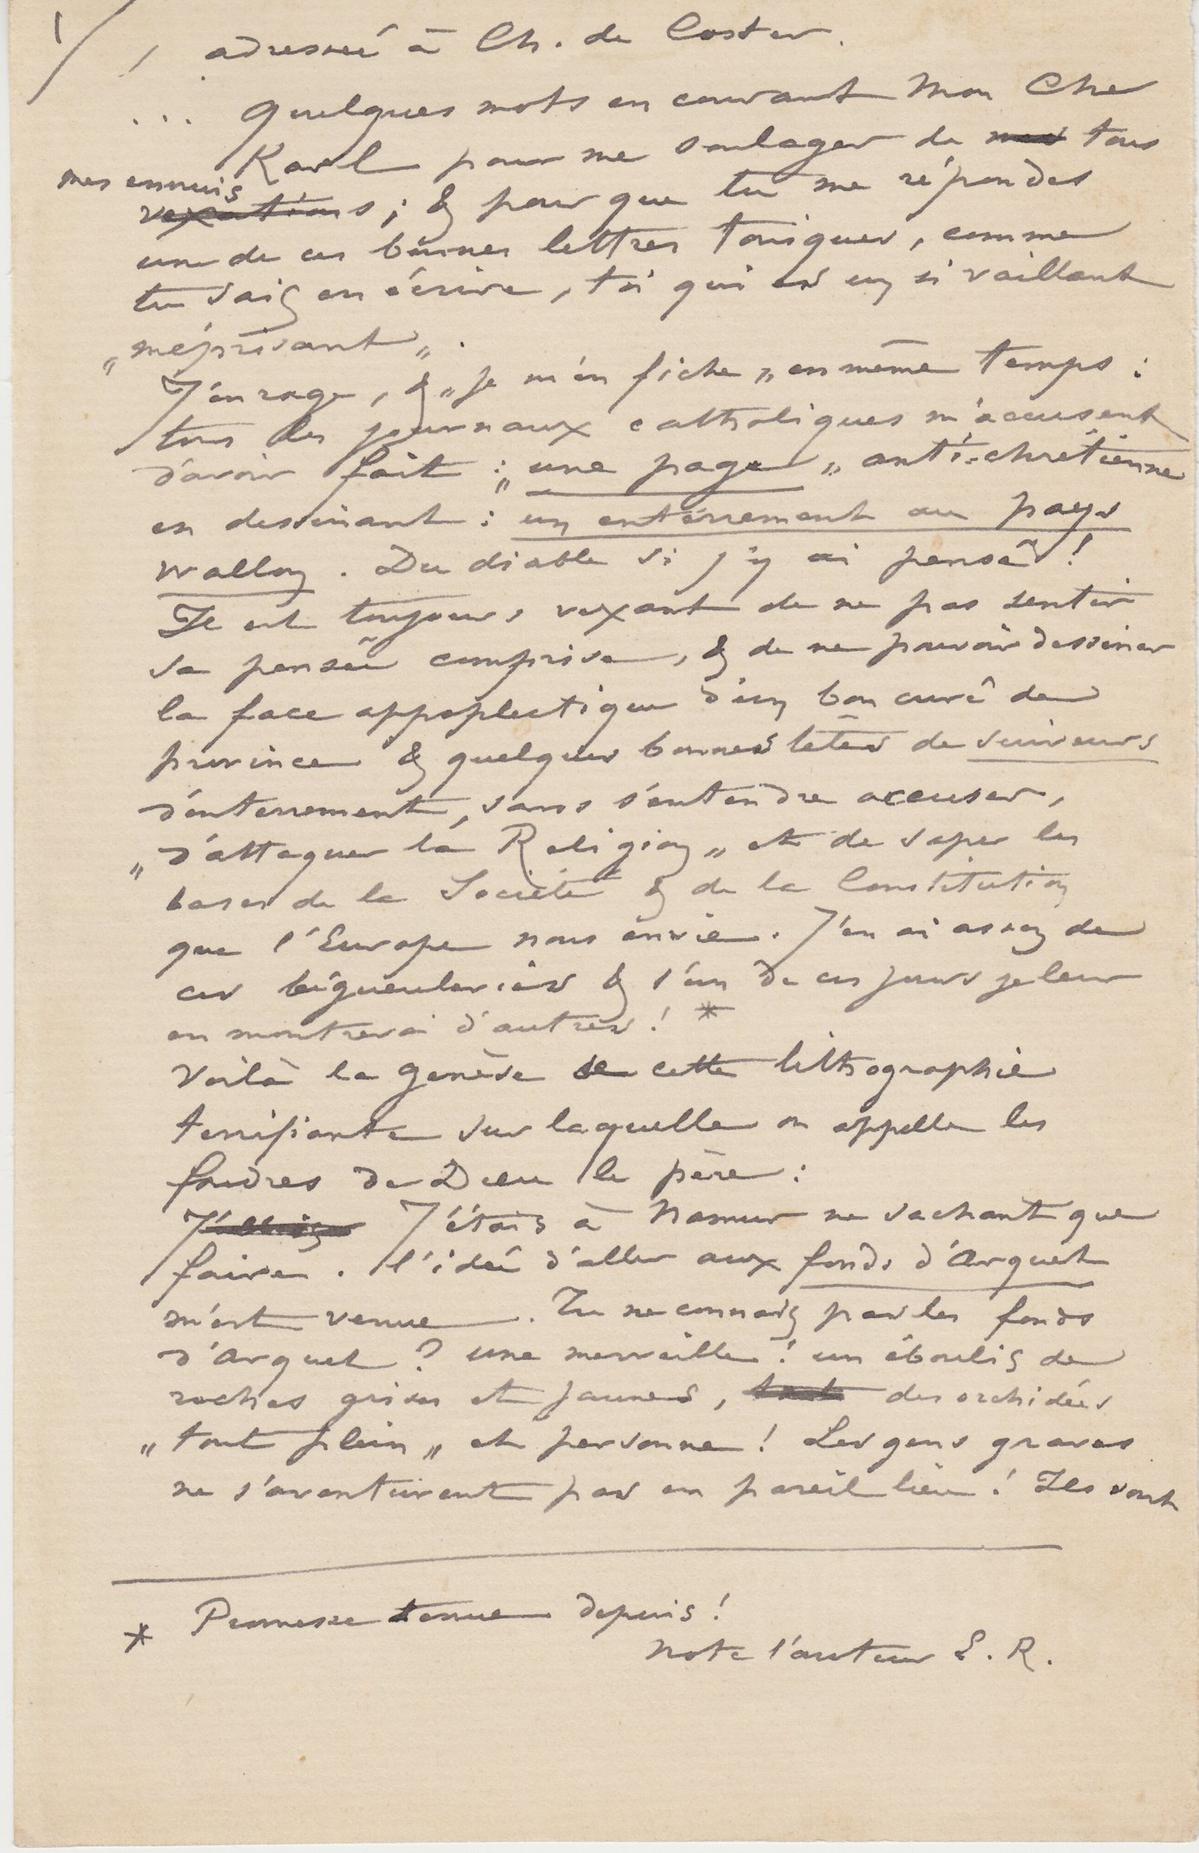 1/ , adressée à Ch. de Coster.
... Quelques mots en courant Mon Cher
Karl pour me soulager de mes tous
mes ennuis
vexations ; & pour que tu me répondes
une de ces bonnes lettres toniques, comme
tu sais en écrire, toi qui es un si vaillant
„méprisant„.
J'enrage, & „je m'en fiche„ en même temps :
tous les journaux catholiques m'accusent
d'avoir fait : „une page„ anti-chrétienne
en dessinant : un enterrement au pays
wallon. Du diable si j'y ai pensé !
Il est toujours vexant de ne pas sentir
sa pensée comprise, & de ne pouvoir dessiner
la face appoplectique d'un bon curé de
province & quelques bonnes têtes de suiveurs
d'enterrement, sans s'entendre accuser,
„d'attaquer la Religion„ et de saper les
bases de la Société & de la Constitution
que l'Europe nous envie. J'en ai assez de
ces bégueuleries & l'un de ces jours je leur
en montrerai d'autres ! *
Voilà la genèse de cette lithographie
terrifiante sur laquelle on appelle les
foudres de Dieu le père :
J'allais J'étais à Namur ne sachant que
faire. l'idée d'aller aux fonds d'Arquet
m'est venue. Tu ne connais pas les fonds
d'Arquet ? une merveille ! un éboulis de
roches grises et jaunes, tout des orchidées
„tout plein„ et personne ! Les gens graves
ne s'aventurent pas en pareil lieu ! Ils vont
* Promesse tenue depuis !
Note l'auteur F. R.